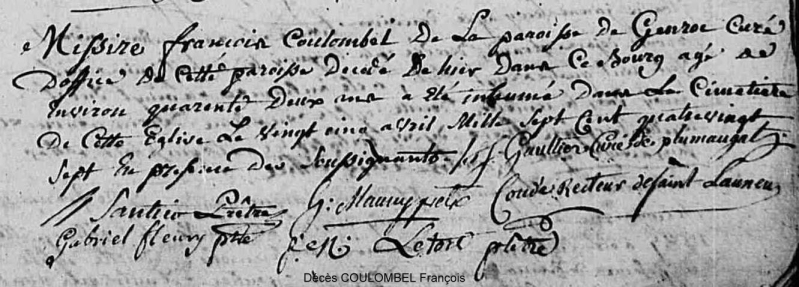 Missire françois Coulombel De La paroisse de Genroc Curé
Doffice de Cette paroisse Decedé De hier dans Ce Bourg agé de
Environ quarente Deux ans a été inhumé Dans Le Cimetiere
De Cette Eglise Le vingt cinq avril Mille Sept Cent quatrevingt
Sept En presence des Soussignants Gaultier Curé de plumaugat
Prêtre Recteur de Saint Launeu
Gabriel fleury ptre Letort prêtre
Décès COULOMBEL François